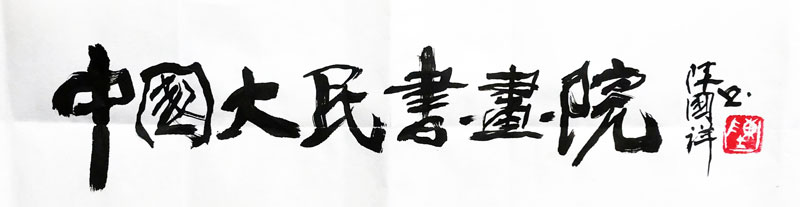 中國大民書畫院
陈國祥书